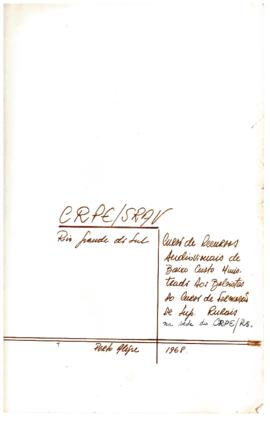 CRPE/SRAV
Rio Grande do Sul
Curso de Recursos
Audiovisuais de
Baixo Custo Minis-
trado Aos Bolsistas
do Curso de Formação
de Sup. Rurais
na sede do CRPE/RS.
Porto Alegre
1968.